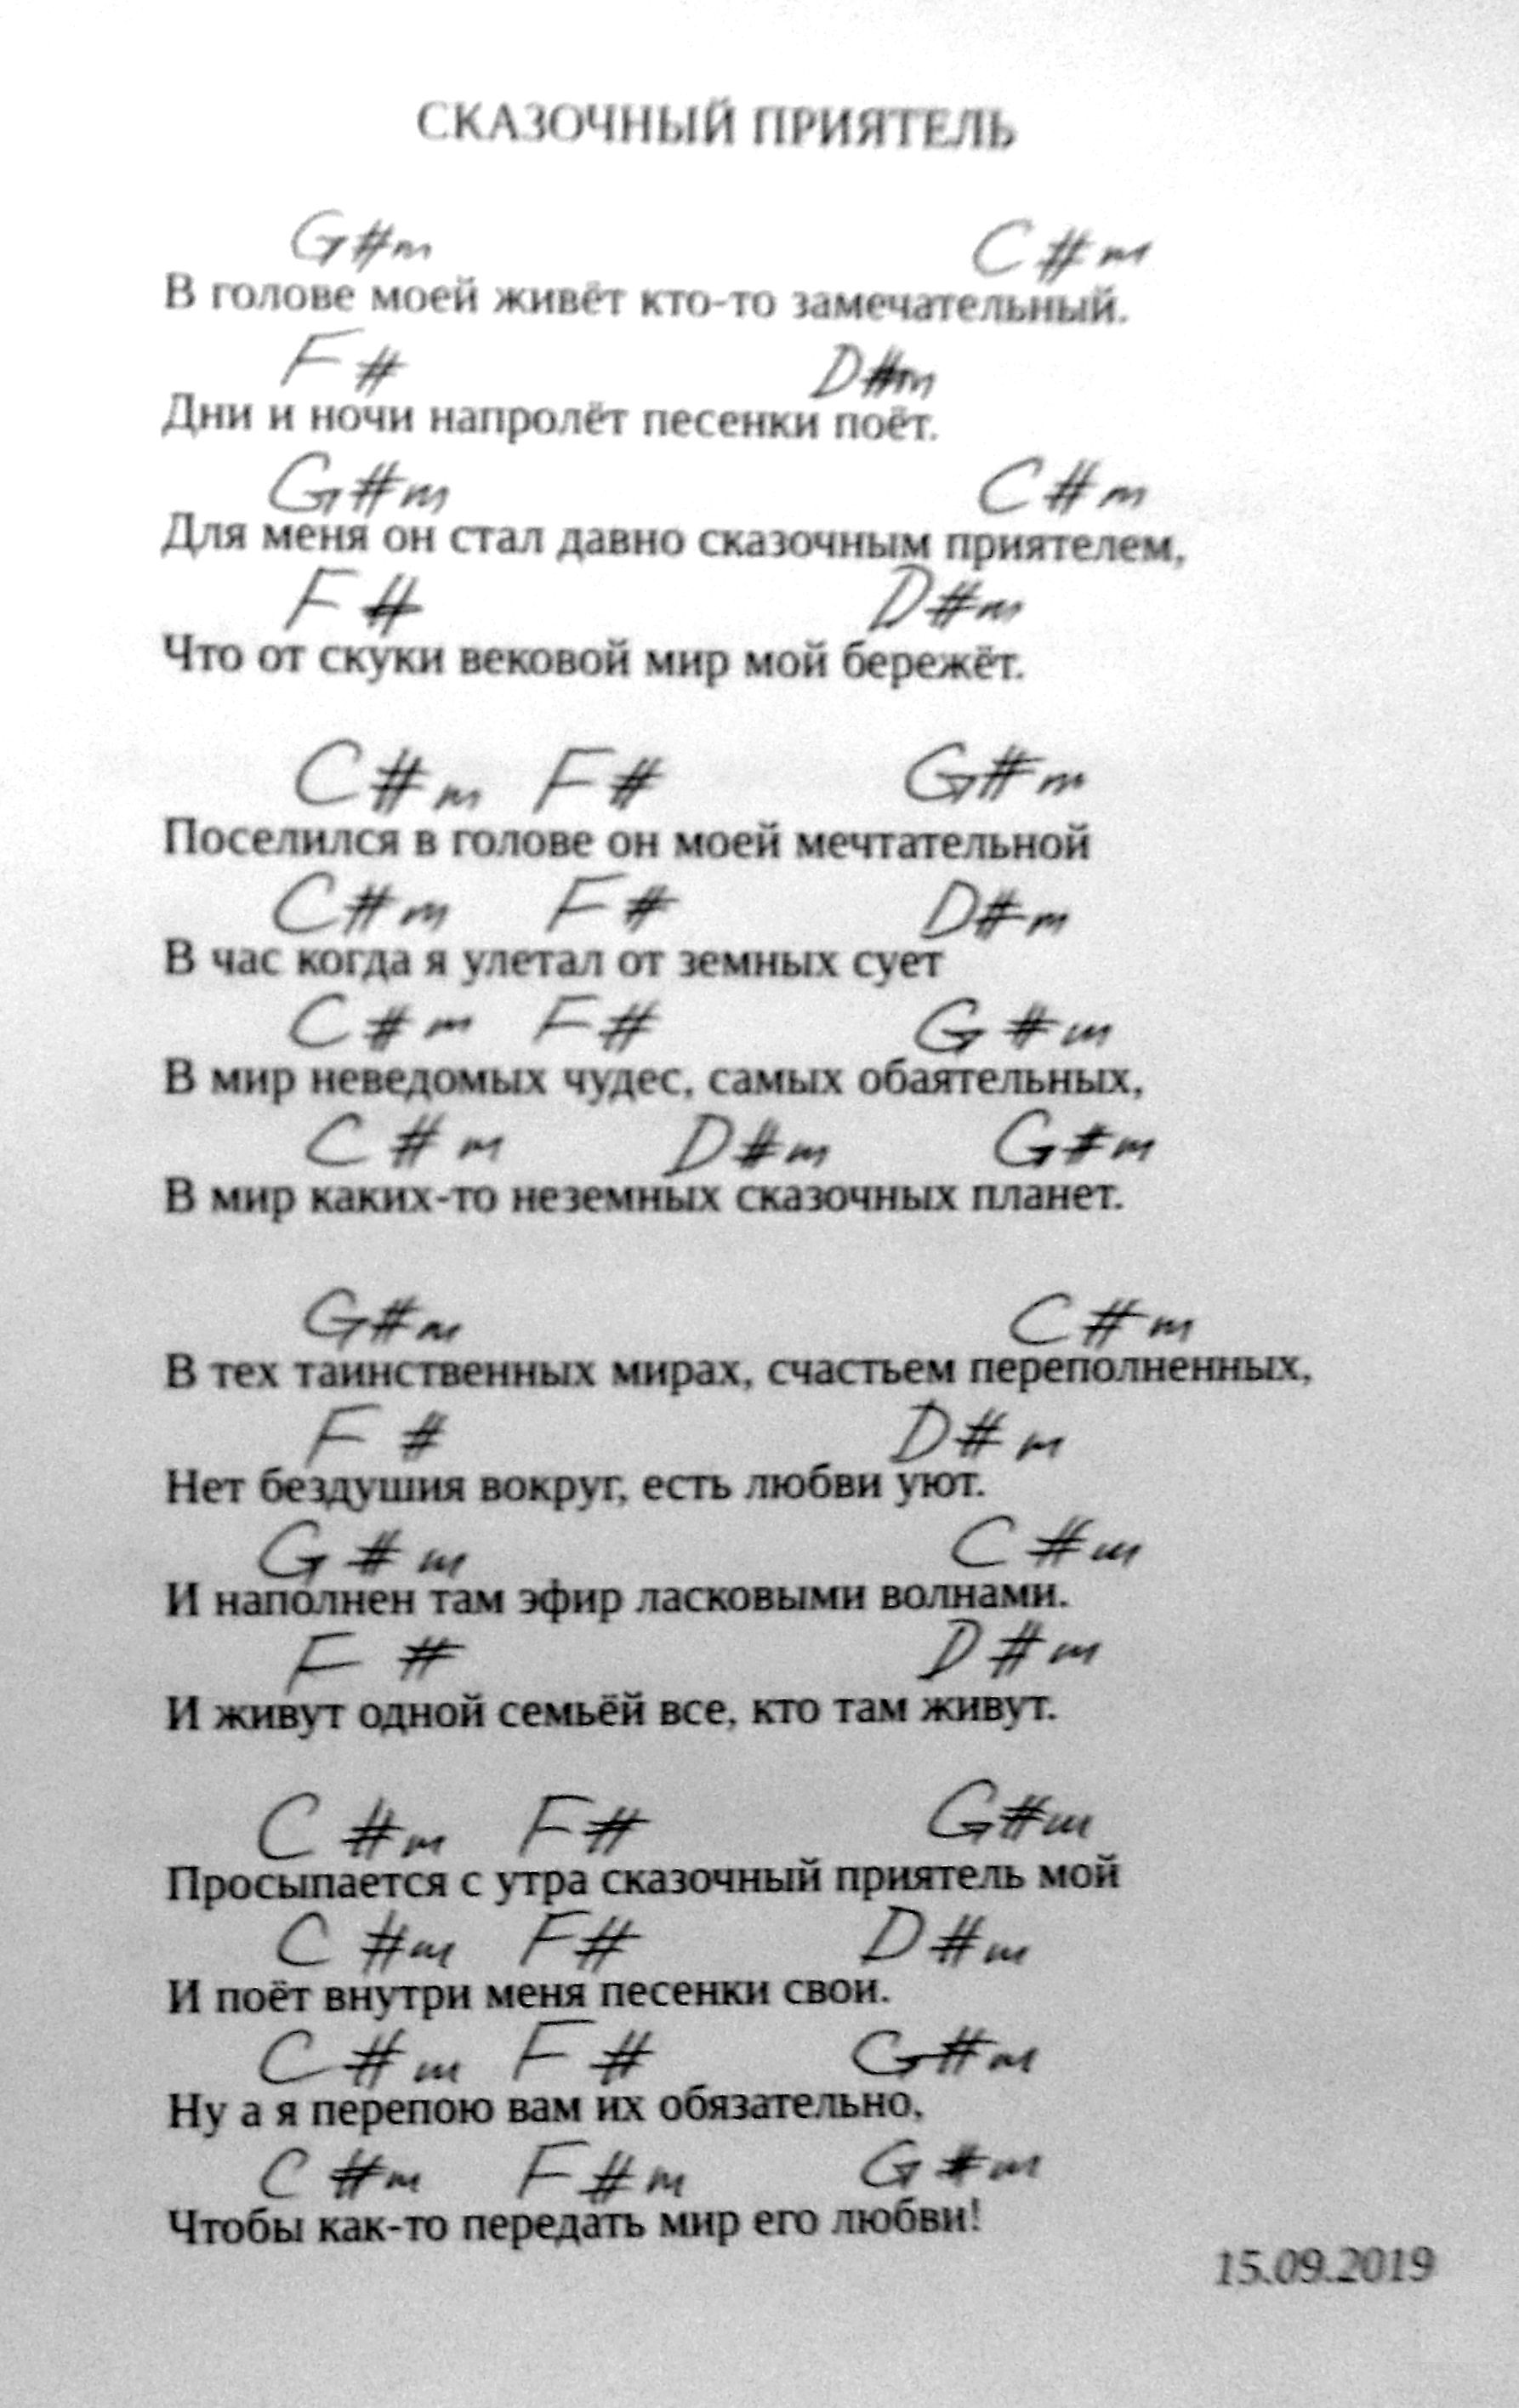 СКАЗОЧНЫЙ ПРИЯТЕЛЬ
G#m C#m
В голове моей живёт кто-то замечательный.
F# D#m
Дни и ночи напролёт песенки поёт.
G#m C#m
Для меня он стал давно сказочным приятелем,
F# D#m
Что от скуки вековой мир мой бережёт.
C#m F# G#m
Поселился в голове он моей мечтательной
C#m F# D#m
В час когда я улетал от земных сует
C#m F# G#m
В мир неведомых чудес, самых обаятельных,
C#m D#m G#m
В мир каких-то неземных сказочных планет.
G#m C#m
В тех таинственных мирах, счастьем переполненных,
F# D#m
Нет бездушия вокруг, есть любви уют.
G#m C#m
И наполнен там эфир ласковыми волнами.
F# D#m
И живут одной семьёй все, кто там живут.
C#m F# G#m
Просыпается с утра сказочный приятель мой
C#m F# D#m
И поёт внутри меня песенки свои.
C#m F# G#m
Ну а я перепою вам их обязательно,
C#m F#m G#m
Чтобы как-то передать мир его любви!
15.09.2019